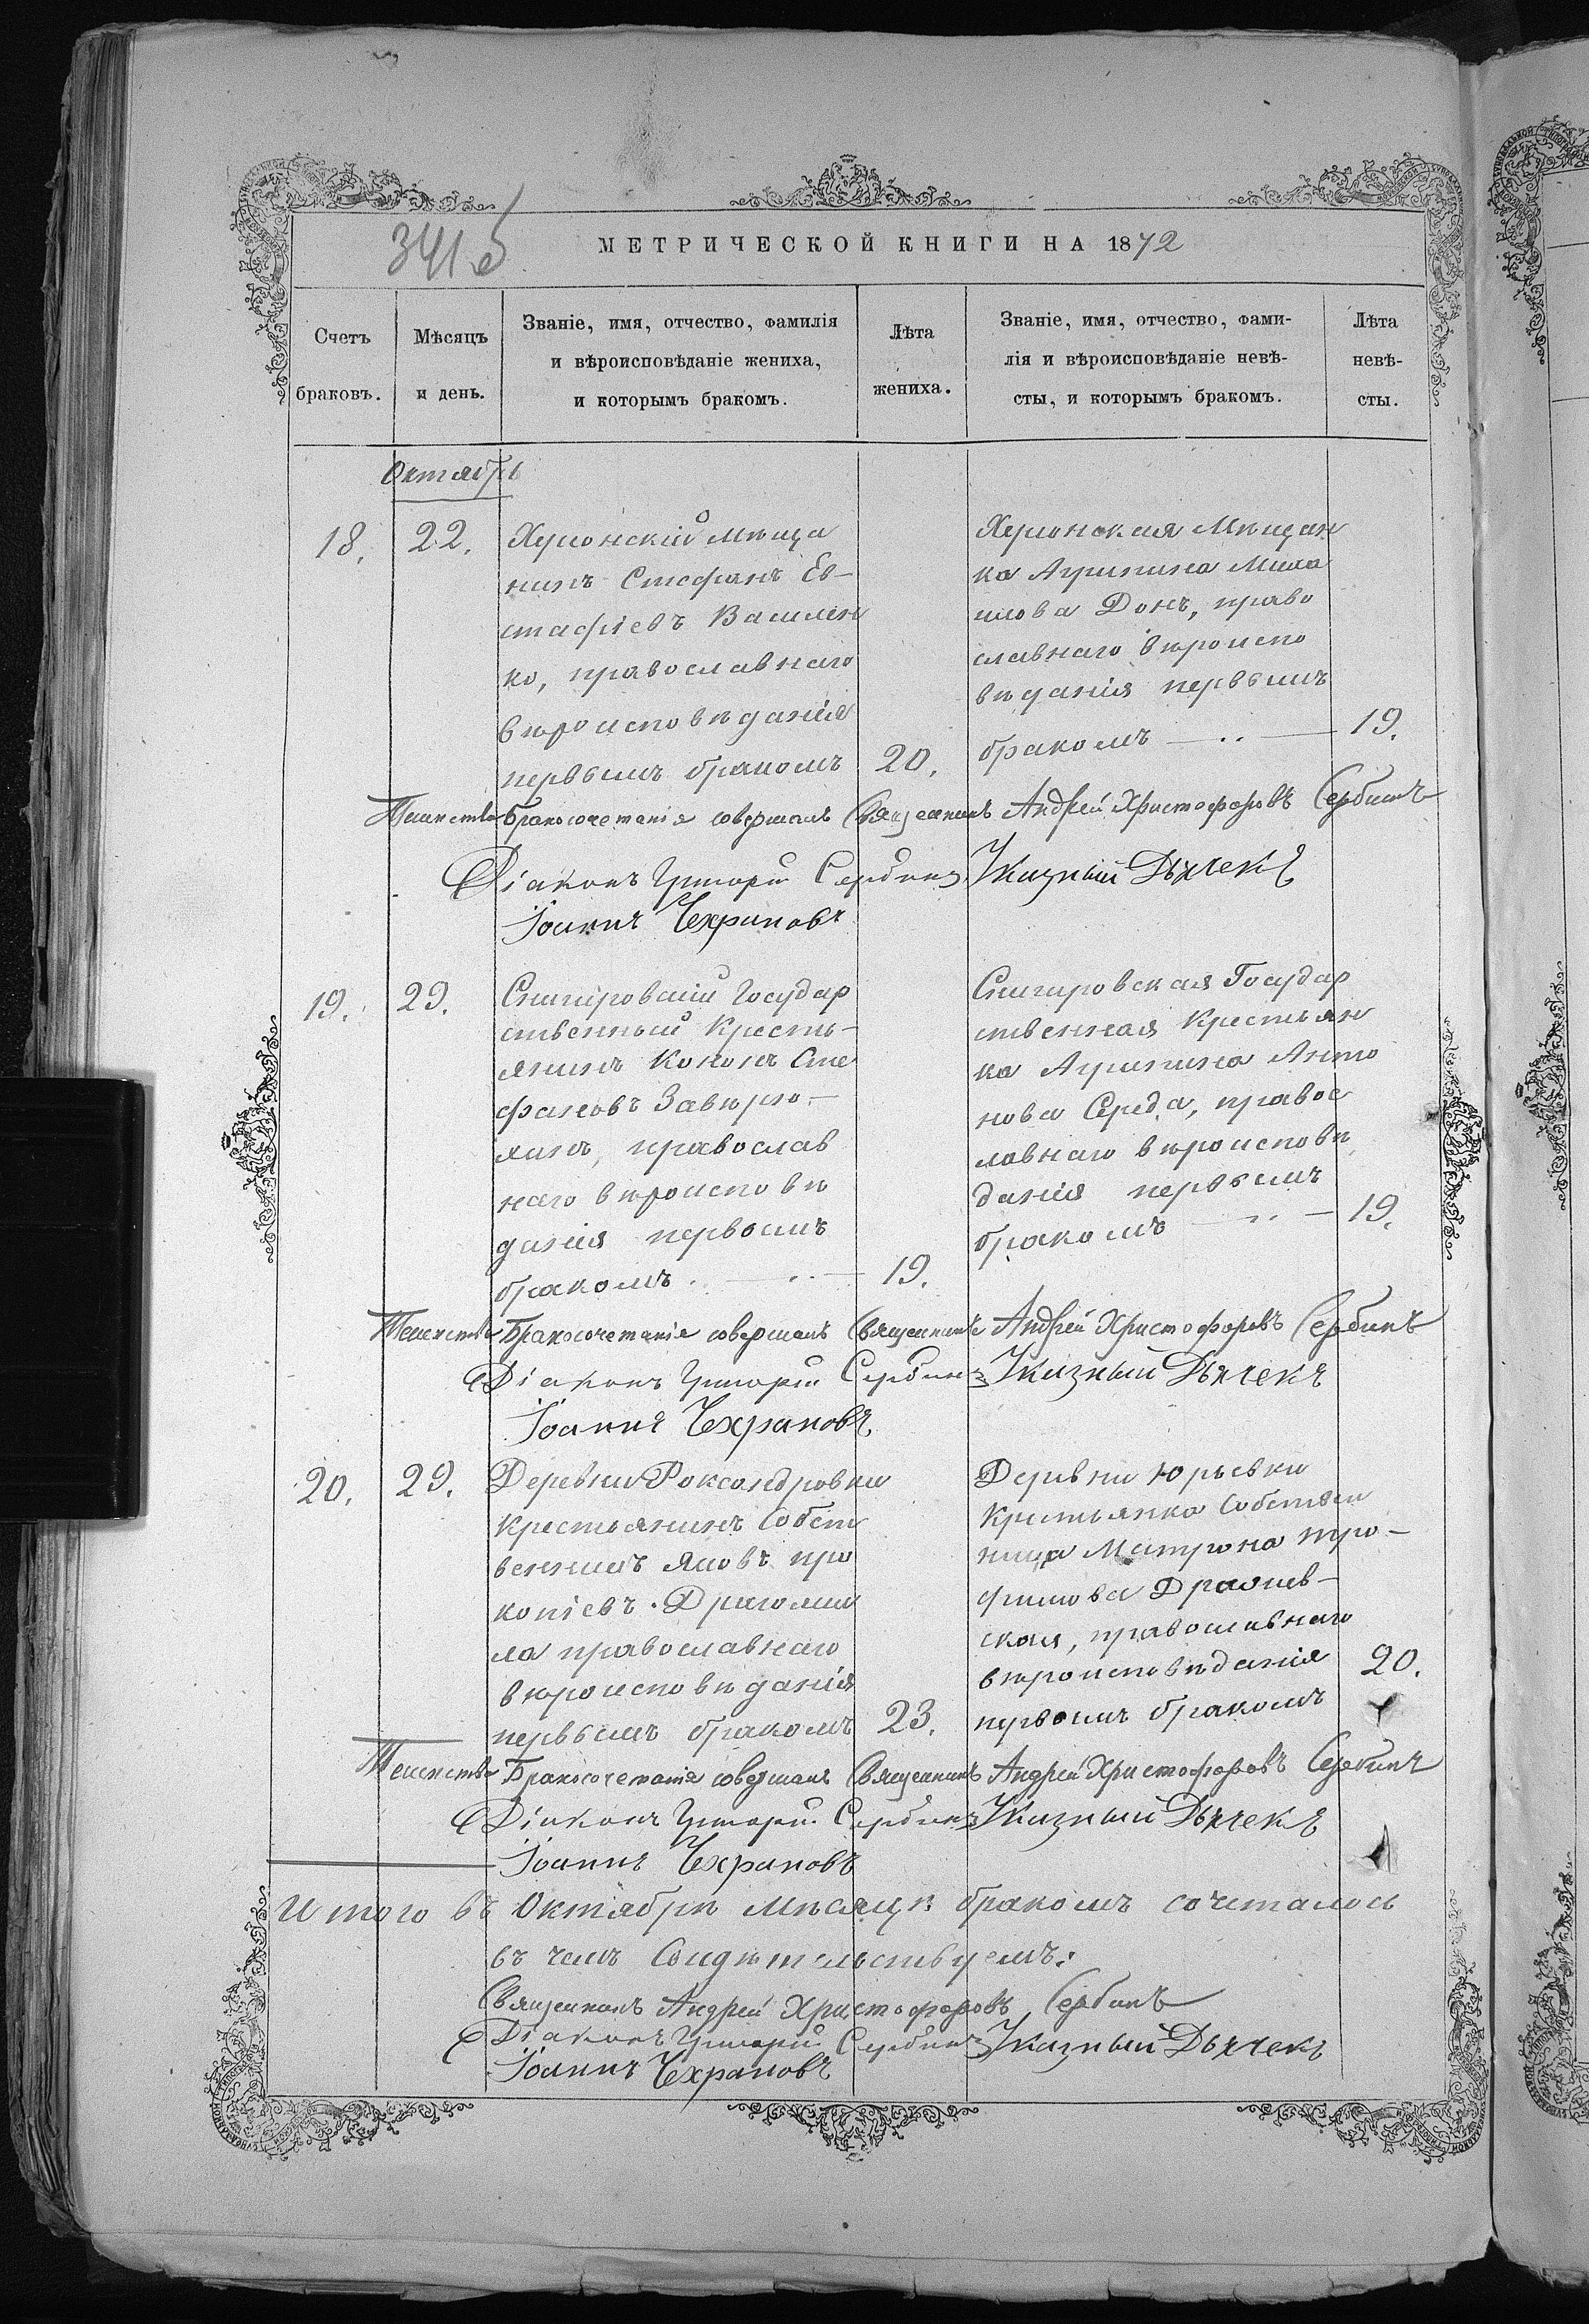 341 об
МЕТРИЧЕСКОЙ КНИГИ НА 1872
Счетъ браковъ.
Мѣсяцъ и день.
Званіе, имя, отчество, фамилія
и вѣроисповѣданіе жениха,
и которымъ бракомъ.
Лѣта жениха.
Званіе, имя, отчество, фами-
лія и вѣроисповѣданіе невѣ-
сты, и которымъ бракомъ.
Лѣта невѣ-
сты.
Октябрь
18. 22.
Херсонскій мѣща
нинъ Стефанъ Ев-
стафіевъ Василен
ко, православнаго
вѣроисповѣданія
первымъ бракомъ 20.
Херсонская Мѣщан
ка Агрипина Миха
илова Донъ, право
славнаго вѣроиспо
вѣданія первымъ
бракомъ 19.
Таинство Бракосочетанія совершалъ Священникъ Андрей Христофоровъ Сербинъ
Діаконъ Григорій Сербинъ Указный Дьячекъ
Іоаннъ Чехрановъ
19. 29.
Снигировскій Государ
ственный Кресть-
янинъ Кононъ Сте
фановъ Завѣрю-
хинъ, православ
наго вѣроисповѣ
данія первымъ
бракомъ 19.
Снигировская Государ
ственная Крестьян
ка Агрипина Анто
нова Середа, правос
лавнаго вѣроисповѣ
данія первымъ
бракомъ 19.
Таинство Бракосочетанія совершалъ Священникъ Андрей Христофоровъ Сербинъ
Діаконъ Григорій Сербинъ Указный Дьячекъ
Іоаннъ Чехрановъ
20. 29.
Деревни Роксандровки
крестьянинъ Собст
венникъ Яковъ Про
копіевъ Драгоми
ла православнаго
вѣроисповѣданія
первымъ бракомъ 23.
Деревни Юрьевки
Крестьянка Собствен
ница Матрона Тро-
фимова
ская, православнаго
вѣроисповѣданія 20.
первымъ бракомъ
Таинство Бракосочетанія совершалъ Священникъ Андрей Христофоровъ Сербинъ
Діаконъ Григорій Сербинъ Указный Дьячекъ
Іоаннъ Чехрановъ
Итого въ Октябрѣ Мѣсяцѣ бракомъ сочеталось
въ чемъ Свидѣтельствуемъ:
Священникъ Андрей Христофоровъ Сербинъ
Діаконъ Григорій Сербинъ Указный Дьячекъ
Іоаннъ Чехрановъ